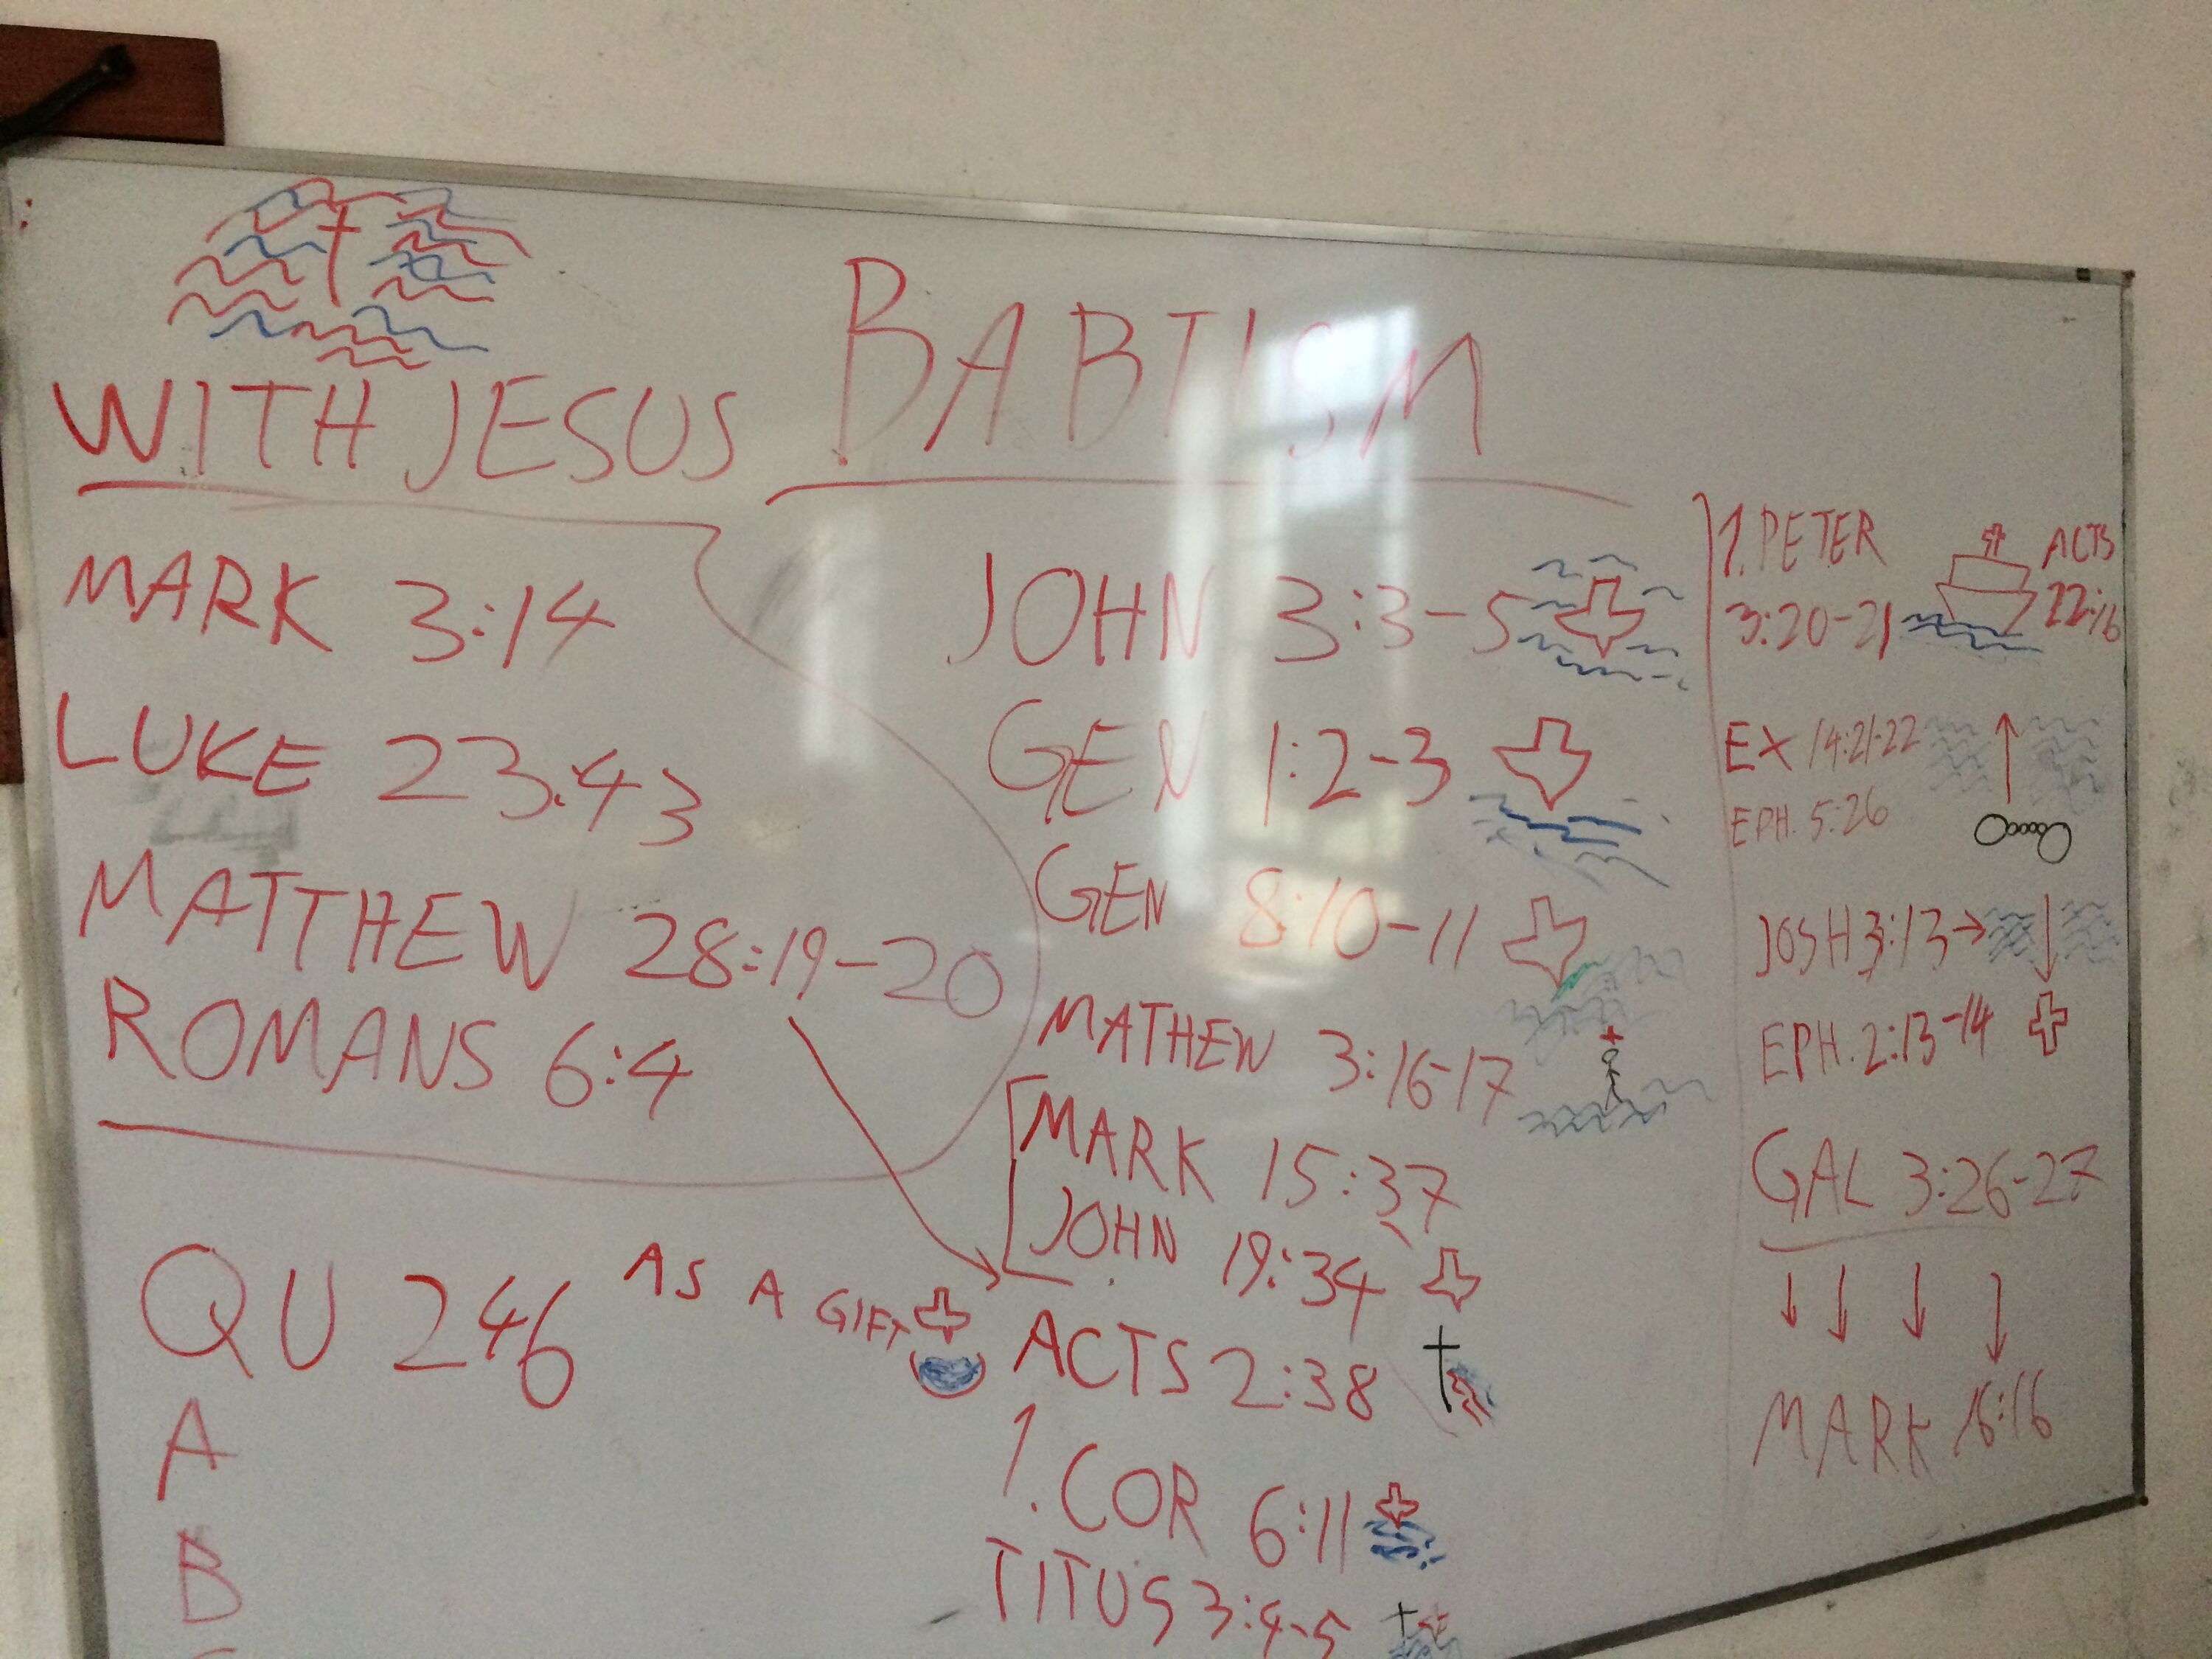 BABTISM
WITH JESUS
MARK 3:14
LUKE 23:43
MATTHEW 28:19-20
ROMANS 6:4
QU 246
AS A GIFT
A
B
JOHN 3:3-5
GEN 1:2-3
GEN 8:10-11
MATHEW 3:16-17
MARK 15:37
JOHN 19:34
ACTS 2:38
1. COR 6:11
TITUS 3:4-5
1. PETER
3:20-21
ACTS
22:16
EX 14:21-22
EPH. 5:26
JOSH 3:13
EPH. 2:13-14
GAL 3:26-27
MARK 16:16